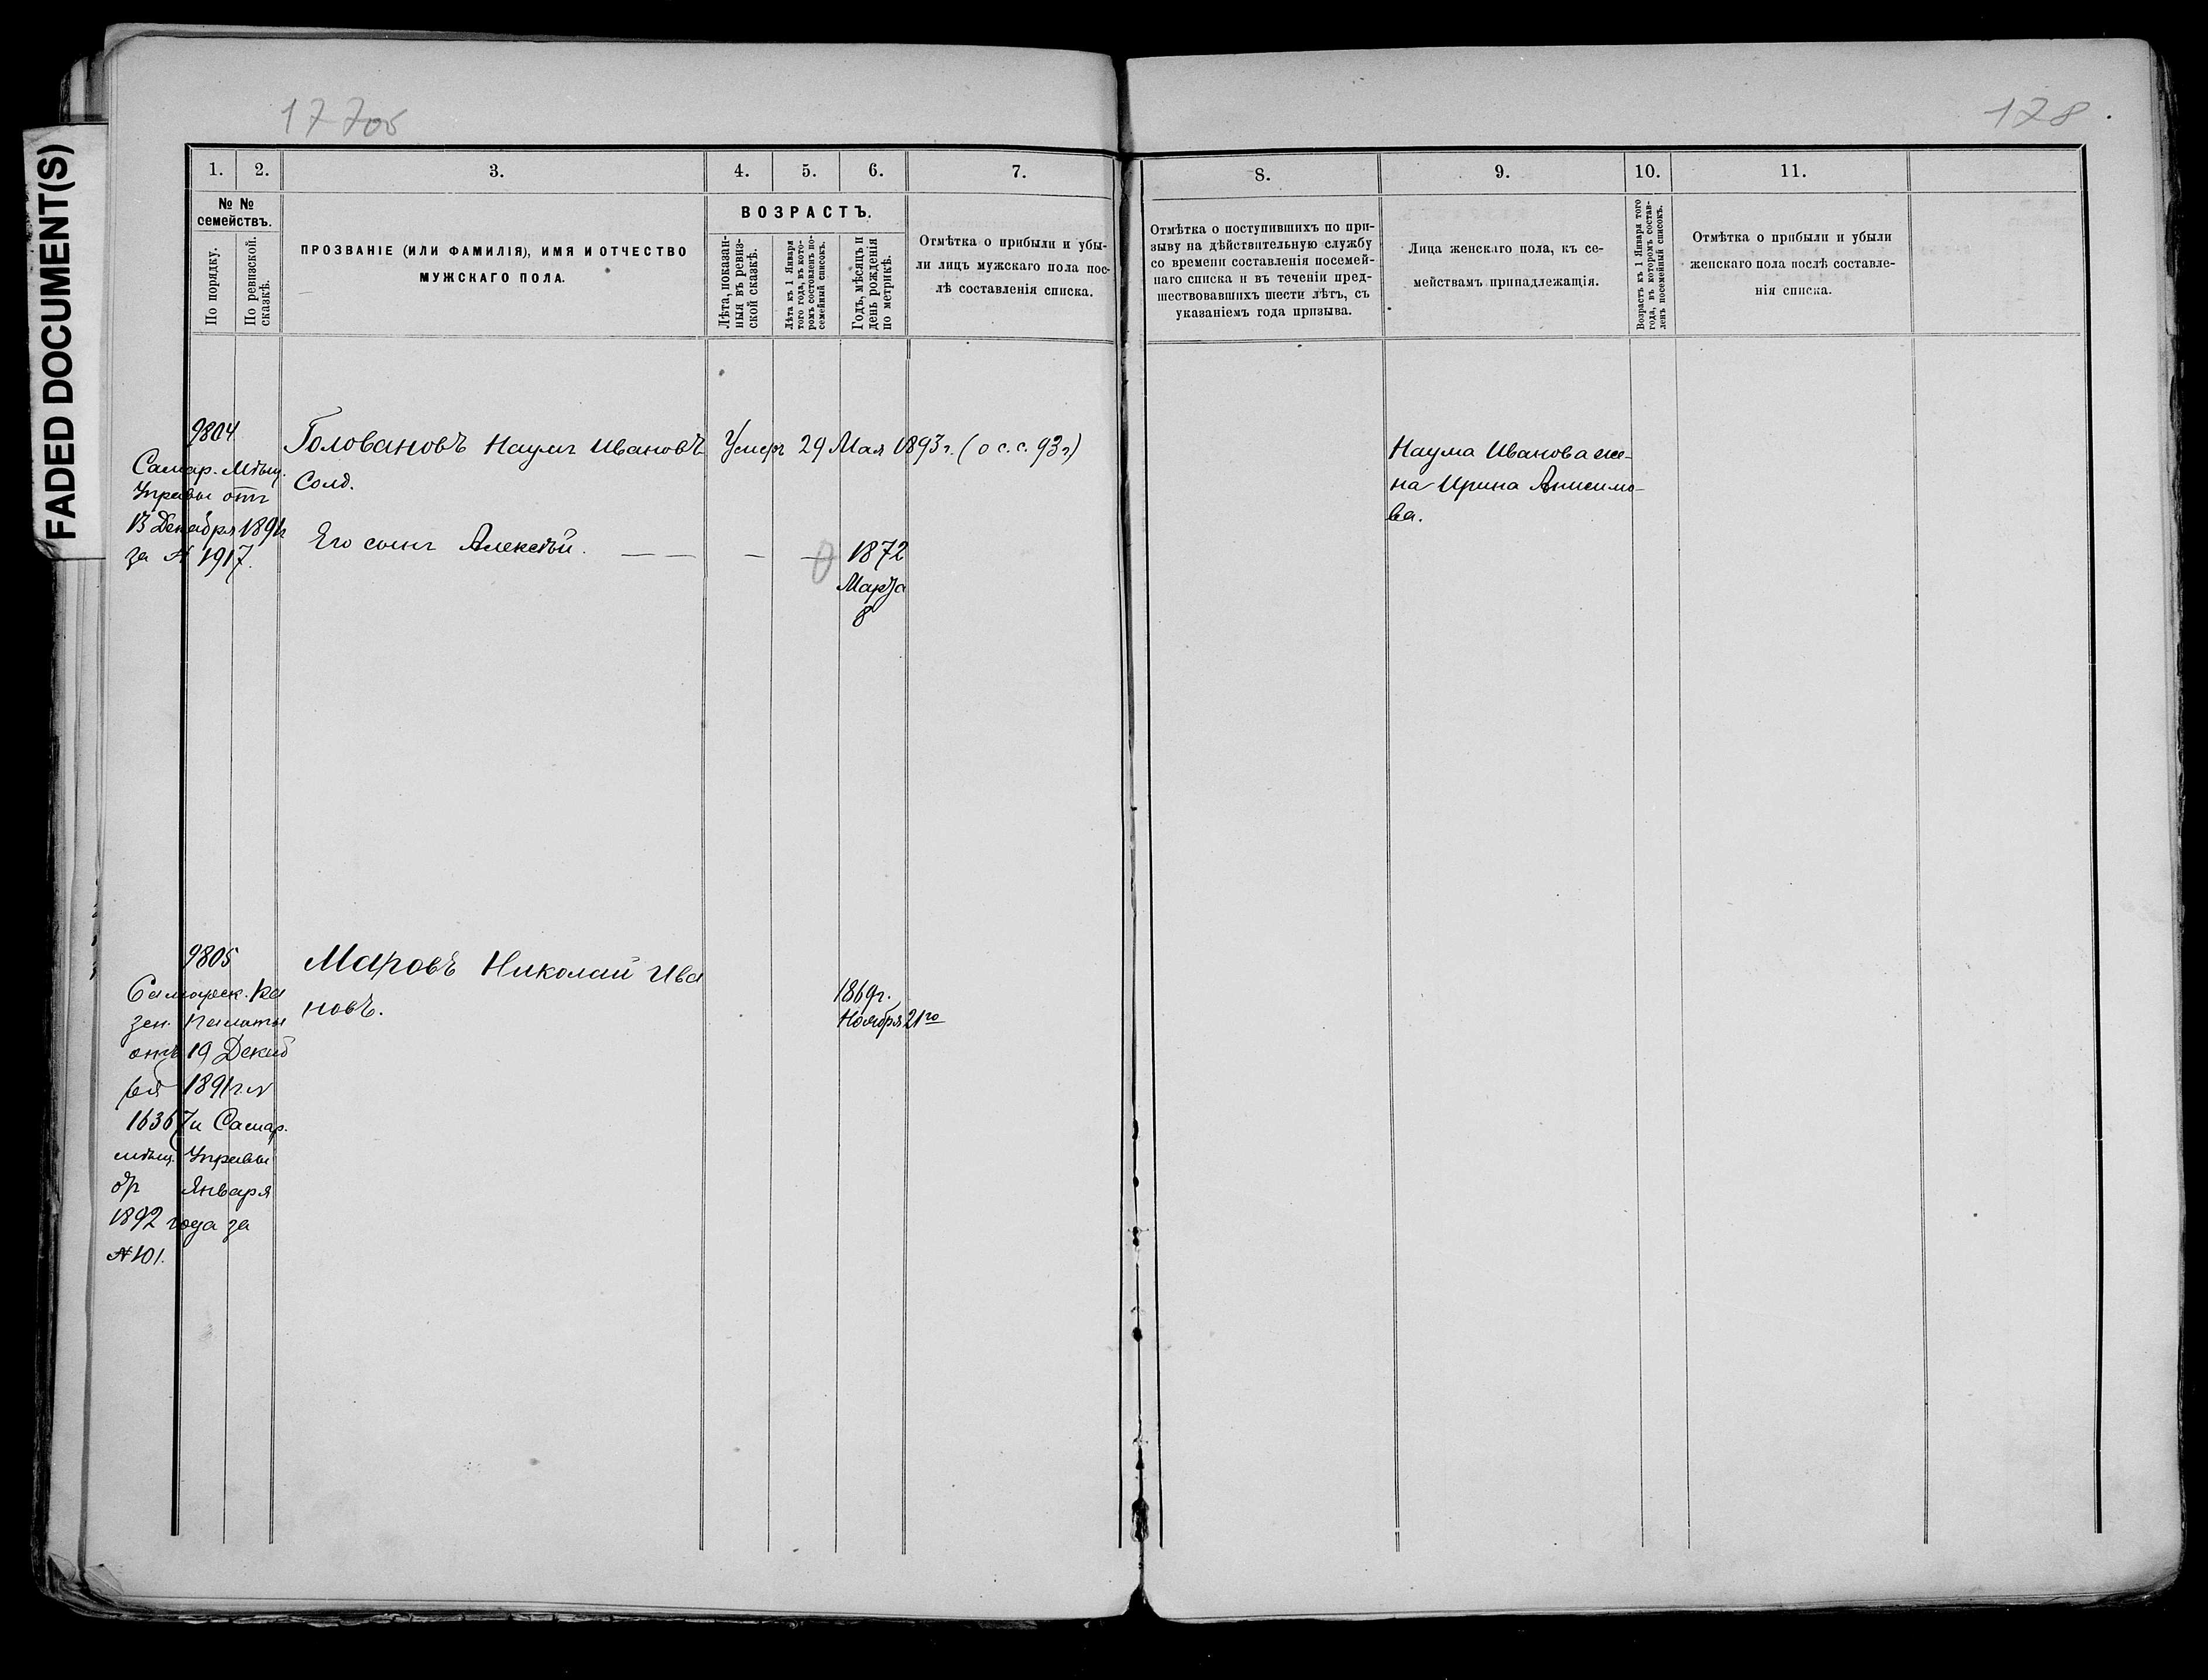 FADED DOCUMENT(S)
177об
178.
1.
2.
3.
4.
5.
6.
7.
8.
9.
10.
11.
№ №
семействъ.
По порядку.
По ревизской.
сказкѣ.
ПРОЗВАНІЕ (ИЛИ ФАМИЛІЯ), ИМЯ И ОТЧЕСТВО
МУЖСКАГО ПОЛА.
ВОЗРАСТЪ.
Лѣта, показан-
ныя въ ревиз-
ской сказкѣ.
Лѣта къ 1 Января
того года, въ кото-
ромъ составленъ по-
семейный списокъ.
Годъ, мѣсяцъ и
день рожденія
по метрикѣ.
Отмѣтка о прибыли и убы-
ли лицъ мужскаго пола пос-
лѣ составленія списка.
Отмѣтка о поступившихъ по при-
зыву на дѣйствительную службу
со времени составленія посемей-
наго списка и въ теченіи пред-
шествовавшихъ шести лѣтъ, съ
указаніемъ года призыва.
Лица женскаго пола, къ се-
мействамъ принадлежащія.
Возрастъ къ 1 Января того
года, въ которомъ состав-
ленъ посемейный списокъ.
Отмѣтка о прибыли и убыли
женскаго пола послѣ составле-
нія списка.
9804
Самар. Мѣщ.
Управы отъ
13 Декабря 1891г
за № 1917.
Головановъ Наумъ Ивановъ
Солд.
Умеръ 29 Мая 1893г. (о с.с. 93г)
Его сынъ Алексѣй. — — — —
1872
Марта
8
Наума Иванова же-
на Ирина Анисимо-
ва.
9805
Самарск. Ка
зен. Палаты
отъ 19 Декаб
ря 1891г. №
16367 и Самар.
мѣщ. Управы
Января
1892 года за
№ 101.
Маровъ Николай Ива
новъ.
1869г.
Ноября 21го